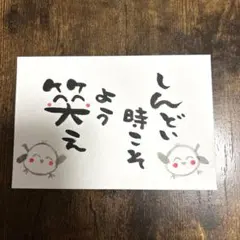 しんどい
時こそ
笑え
よう